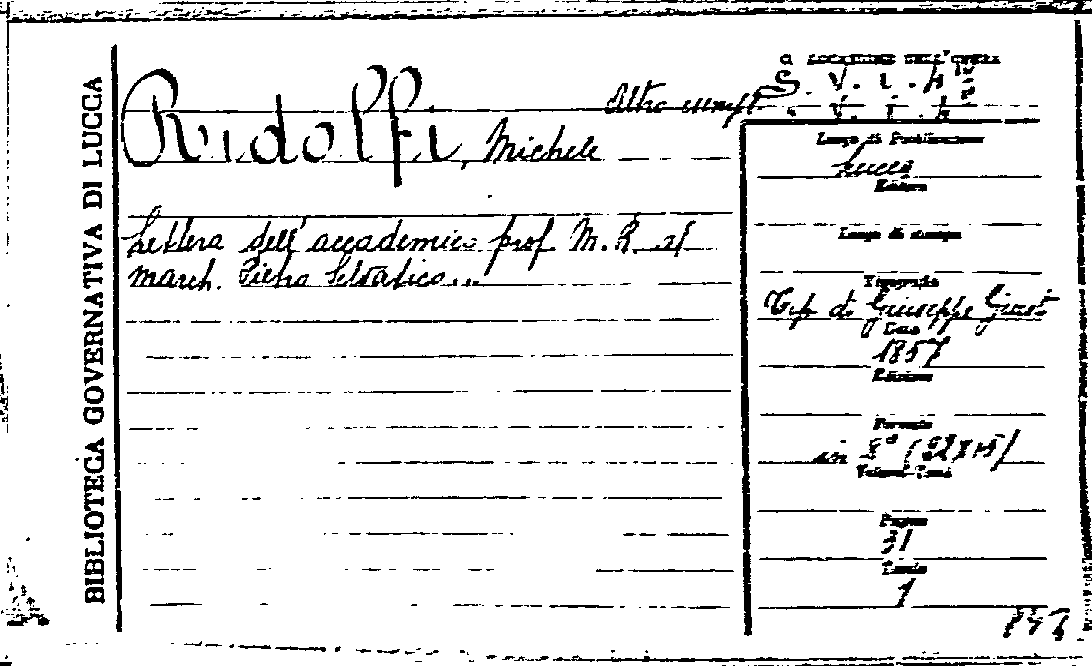 BIBLIOTECA GOVERNATIVA DI LUCCA
COLLOCAZIONE DELL'OPERA
S. V. i. h
Altro esempl. V. i. h
Ridolfi, Michele
Lettera dell'accademico prof. M. R. al
march. Pietro Selvatico...
Luogo di Pubblicazione
Lucca
Editore
Luogo di stampa
Tipografia
Tip. di Giuseppe Giusti
Data
1857
Edizione
Formato
in 8° (22x15)
Volumi-Tomi
Pagine
31
Tavole
1